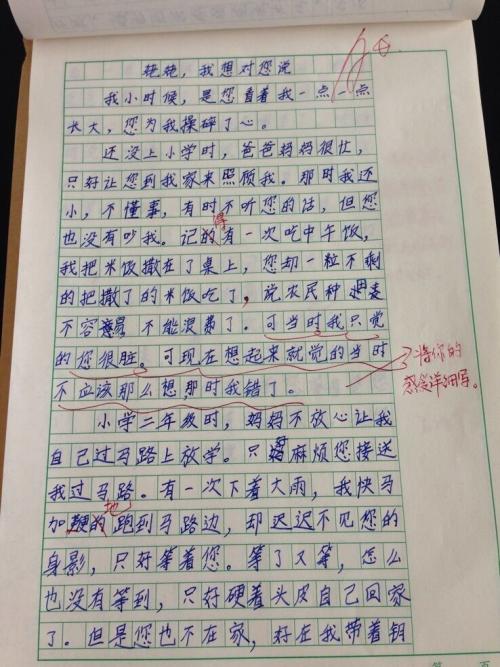 姥姥，我想对您说
我小时候，是您看着我一点一点
长大，您为我操碎了心。
还没上小学时，爸爸妈妈很忙，
只好让您到我家来照顾我。那时我还
小，不懂事，有时不听您的话，但您
也没有吵我。记的得有一次吃中午饭，
我把米饭撒在了桌上，您却一粒不剩
的把撒了的米饭吃了，说农民种
不容易，不能浪费了。可当时我只觉
的您很脏。可现在想起来就觉的当时
不应该那么想那时我错了。
将你的
感受详细写。
小学二年级时，妈妈不放心让我
自己过马路上放学。只好麻烦您接送
我过马路。有一次下着大雨，我快马
加鞭的地跑到马路边，却迟迟不见您的
身影，只好等着您。等了又等，怎么
也没有等到，只好硬着头皮自己回家
了。但是您也不在家，好在我带着钥